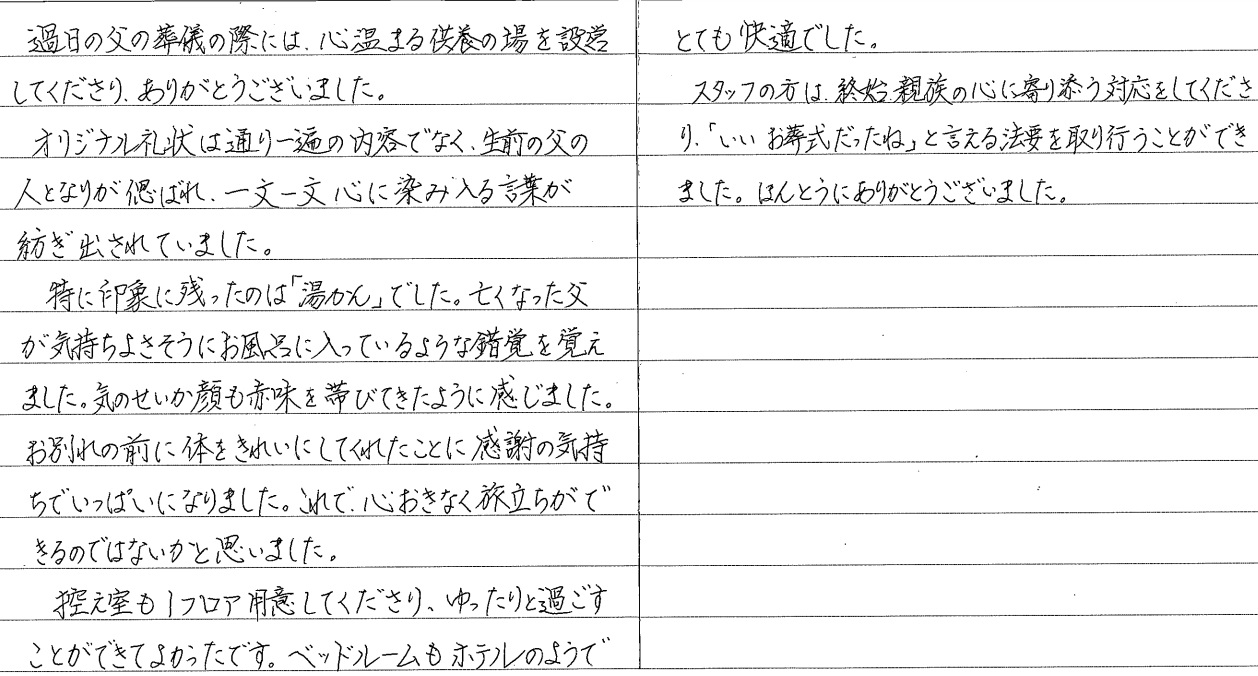 過日の父の葬儀の際には、心温まる供養の場を設営
してくださり、ありがとうございました。
オリジナル礼状は通り一遍の内容でなく、生前の父の
人となりが偲ばれ、一文一文心に染み入る言葉が
紡ぎ出されていました。
特に印象に残ったのは「湯かん」でした。亡くなった父
が気持ちよさそうにお風呂に入っているような錯覚を覚え
ました。気のせいか顔も赤味を帯びてきたように感じました。
お別れの前に体をきれいにしてくれたことに感謝の気持
ちでいっぱいになりました。これで、心おきなく旅立ちがで
きるのではないかと思いました。
控え室も1フロア用意してくださり、ゆったりと過ごす
ことができてよかったです。ベッドルームもホテルのようで
とても快適でした。
スタッフの方は、終始、親族の心に寄り添う対応をしてくださ
り、「いいお葬式だったね」と言える法要を取り行うことができ
ました。ほんとうにありがとうございました。